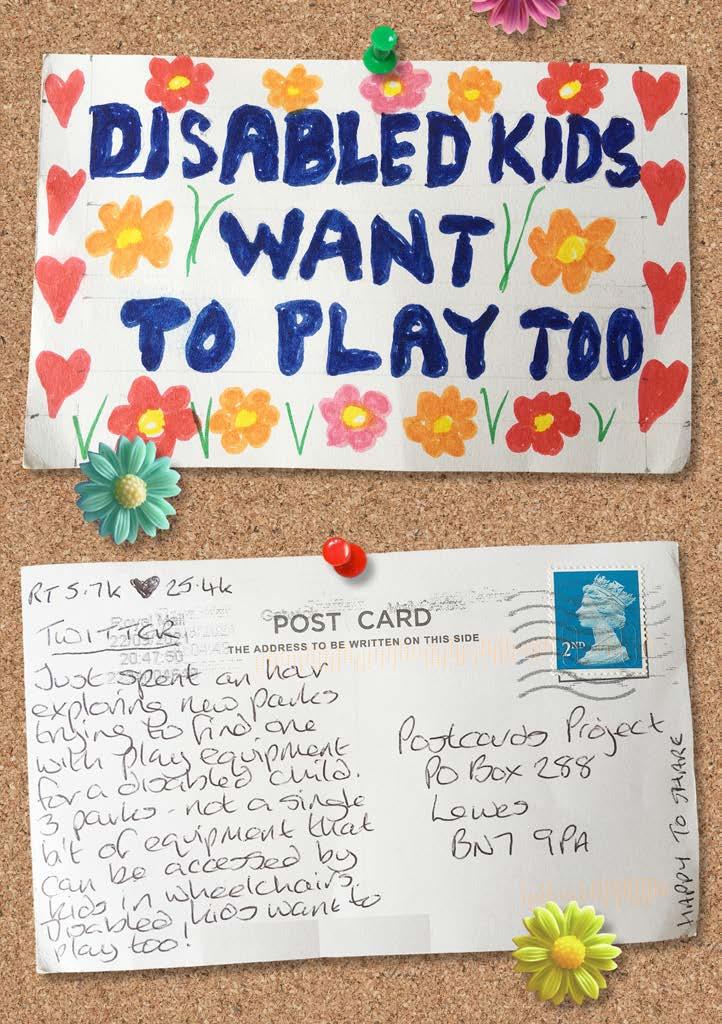 DISABLED KIDS
WANT
TO PLAY TOO
RT 5.7K ♥ 25.4k
TWITTER
Just spent an hour
exploring new parks
trying to find one
with play equipment
for a disabled child.
3 parks - not a single
bit of equipment that
can be accessed by
kids in wheelchairs.
Disabled kids want to
play too!
Royal Mail
20:47:50
POST CARD
THE ADDRESS TO BE WRITTEN ON THIS SIDE
2ND
Postcards Project
PO Box 288
Lewes
BN7 9PA
HAPPY TO SHARE